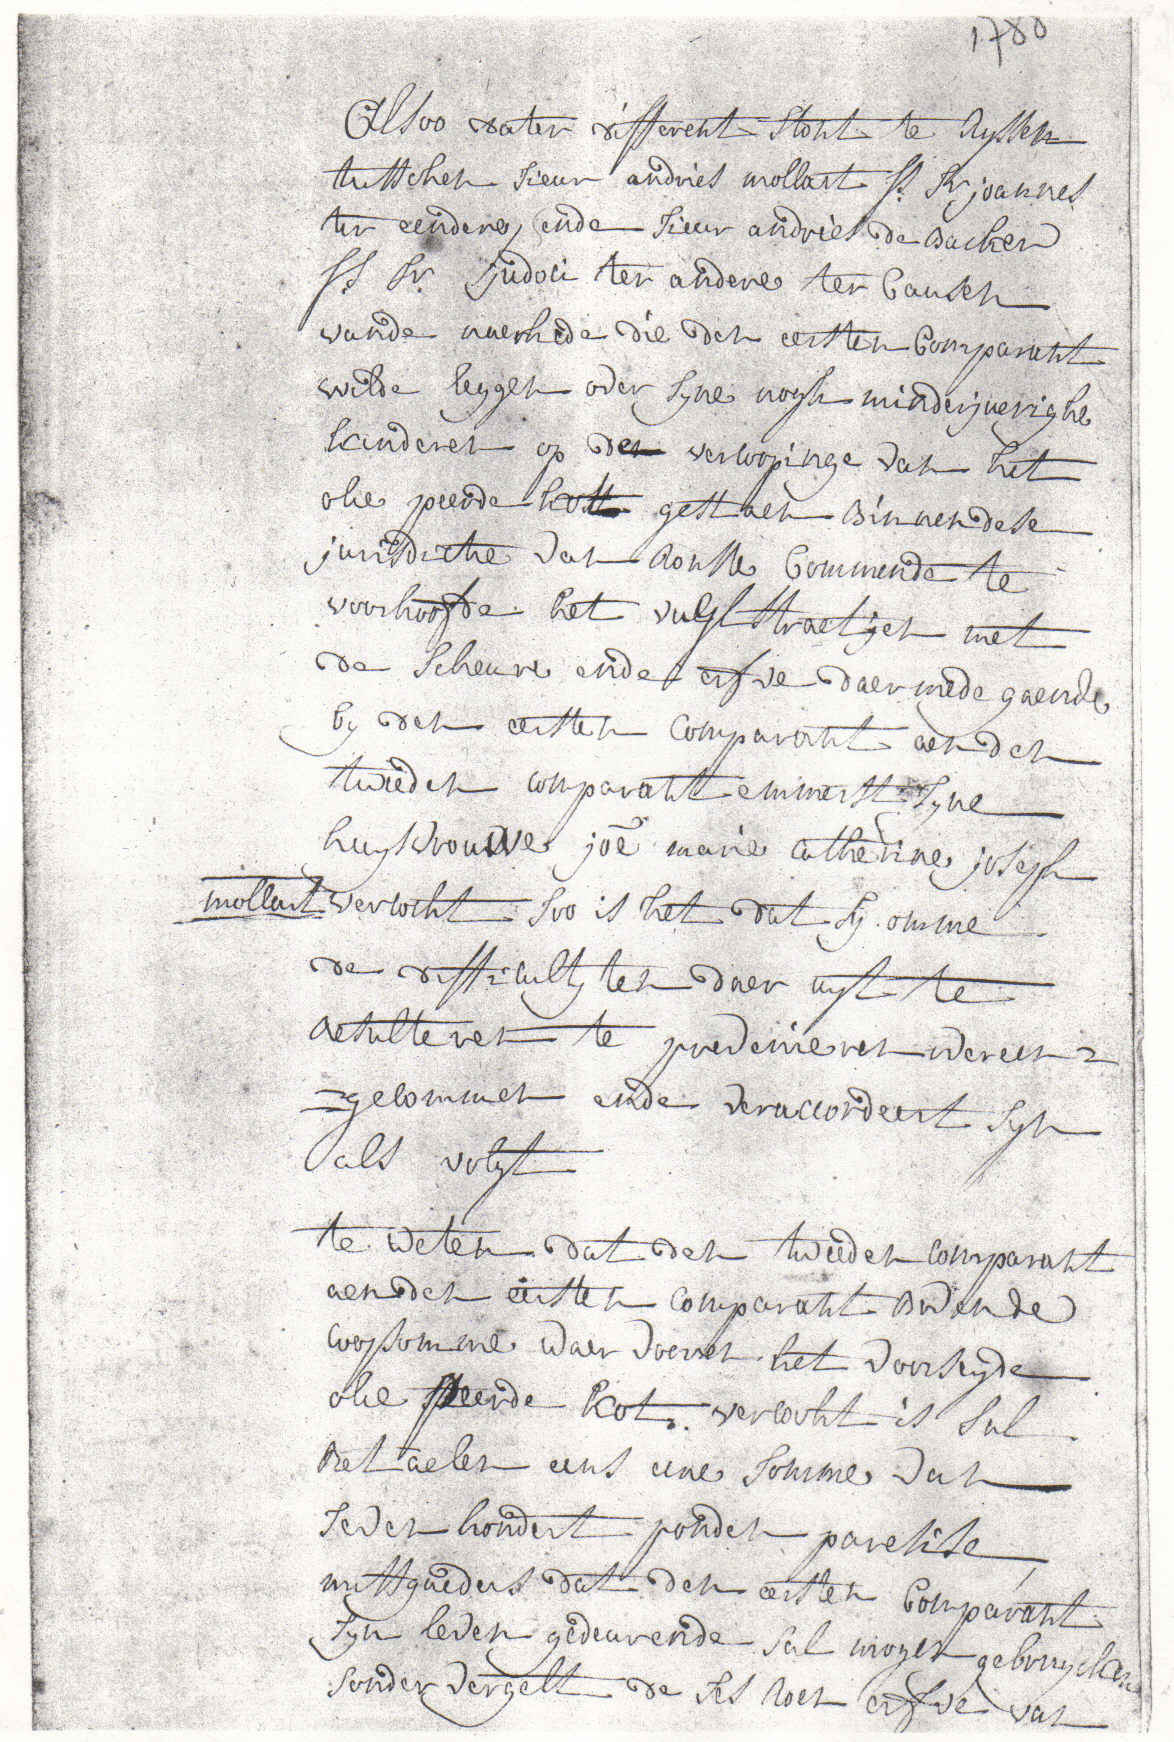 1780
Alsoo dater different stont te Ryssen
tusschen sieur andries mollart fs. Sr. joannes
ter eender, ende sieur andries de Backer
fs. Sr. judoci ter andere ter causen
vande naerhede die den eersten Comparant
wilde leggen over syne nogh minderjaerighe
kinderen op den vercoopinge van het
olie peerde kott gestaen Binnen dese
jurisdictie van Ronsse Commende te
voorhoofde het vuyl straetjen met
de scheure ende erfve daer mede gaende
by den eersten Comparant aen den
tweeden comparant emmers syne
huysvrouwe joē marie catherine joseph
mollart vercocht soo is het dat sy omme
de difficultyten daer uyt te
resulteren te prevenieren vereen=
=gecommen ende veraccordeert syn
als volgt
te weten dat den tweeden comparant
aen den eersten comparant Boven de
coopsomme waer vooren het voorseyde
olie peerde kot vercocht is sal
Betaelen eens eene somme van
seven hondert ponden paresise
mitsgaeders dat den eersten Comparant
syn leven gedeurende sal mogen gebruycken
sonder vergelt de ses roen erfve van